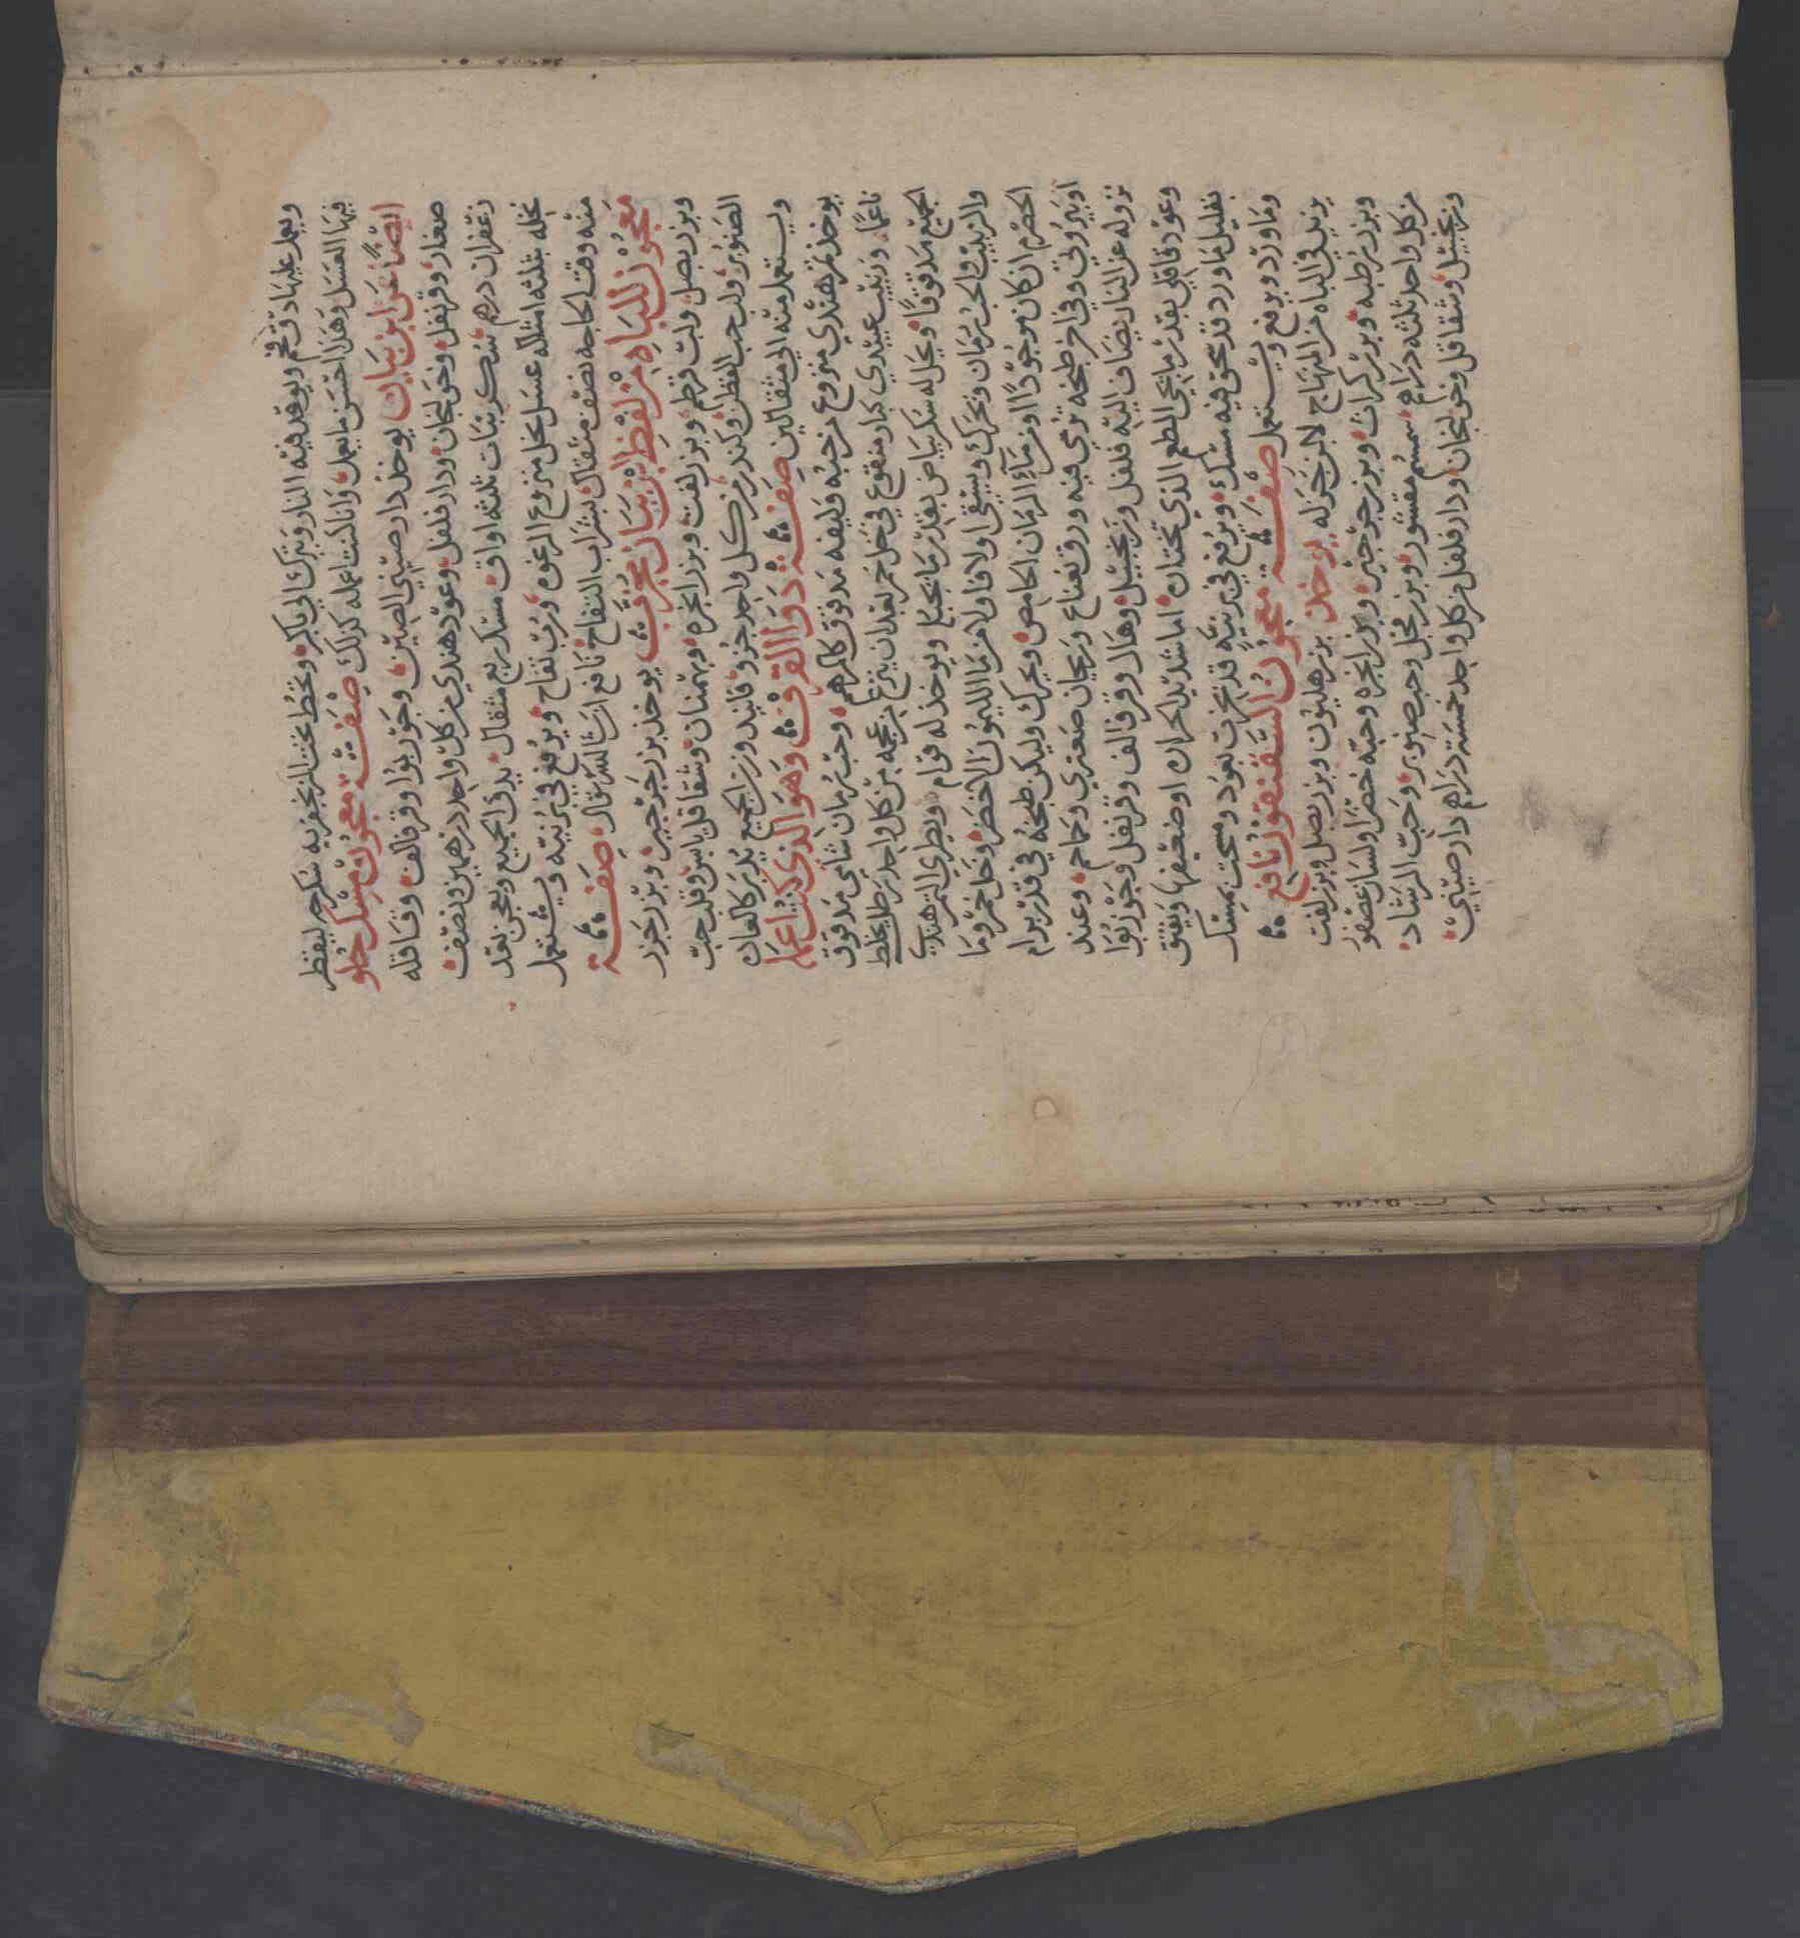 ويعمل عليها دق فحم ويوقد فيه النار ويترك الى باكر ويحط تحت الزنجفريه سكرجه ليقطر
فيها العسل وهذا احسن ما يعمل وانا كنت اعمله كذلك صفة معجون مسك حلو
ايضا عن ابن بيان يوخذ دار صيني الصين وجوز بوا وقرفالف وقاقله
صغار وقرنفل وخولنجان ودار فلفل وعود هندي من كل واحد درهمين ونصف
زعفران درهم سكر نبات ثلثه اواق مسك ربع مثقال يدق الجميع ويعجن بعد
نخله بثلثه امثاله عسل نحل منزوع الرغوه ورب تفاح ويرفع في برنيه ويستعمل
منه وقت الحاجه نصف مثقال بشراب التفاح نافع ان شا الله تعالى صفة
معجون للباه من لفظ بن بيان مجرب يوخذ بزر جرجير وبزر جزر
وبزر بصل ولب قرطم وبزر لفت وبزر انجره وبهمنان وشقاقل يابس وقلب حب
الصنوبر ولب حب القطن وكندر من كل واحد جزو فانيد وزن الجميع يدبر كالعاده
ويستعمل منه الى مثقالين صفة دوا القرف وهو الذي كنت اعمله
يوخذ تمر هندي منزوع من حبه وليفه مدقوق كالمرهم وحب رمان شامي مدقوق
ناعما وزبيب عبيدي كبار منقوع في خل خمر بعد ان ينزع عجمه من كل واحد رطل يخلط
الجميع مدقوقا ويحل له سكر بياض بقدر ما يحتاج ويوخذ له قوام ويطرح التمر هندي
والزبيب والحب رمان ويحرك ويسقى اولا فاولا من ما الليمون الاخضر وخل خمر وما
الحصرم ان كان موجودا او من مآء الرمان الحامض ويحرك وليكن طبخه في قدر برام
او بيروتي وفي اخر طبخه ترمي فيه ورق نعناع وريحان صعتري وحماحم وعند
نزوله عن النار يضاف اليه فلفل وزنجبيل وهال وقرفالف وقرنفل وجوز بوا
وعود قاقلي بقدر ما يجي الطعم الذي تختاره اما شديد الحراره او ضعيفها ويفتق
بقليل ماورد قد سحق فيه مسك ويرفع في برنيه قد بخرت بعود ومسحت بمسك
وماورد ويرفع ويستعمل صفة معجون السقنقور نافع
يزيد في الباه من المنهاج لابن جزله يوخذ بزر هليون وبزر بصل وبزر لفت
وبزر رطبه وبزر كراث وبزر جرجير وبزر انجره وحبه خضرا ولسان عصفور
من كل واحد ثلثه دراهم سمسم مقشور وبزر فجل وحب صنوبر وحب الرشاد
وزنجبيل وشقاقل وخولنجان ودار فلفل من كل واحد خمسة دراهم دار صيني